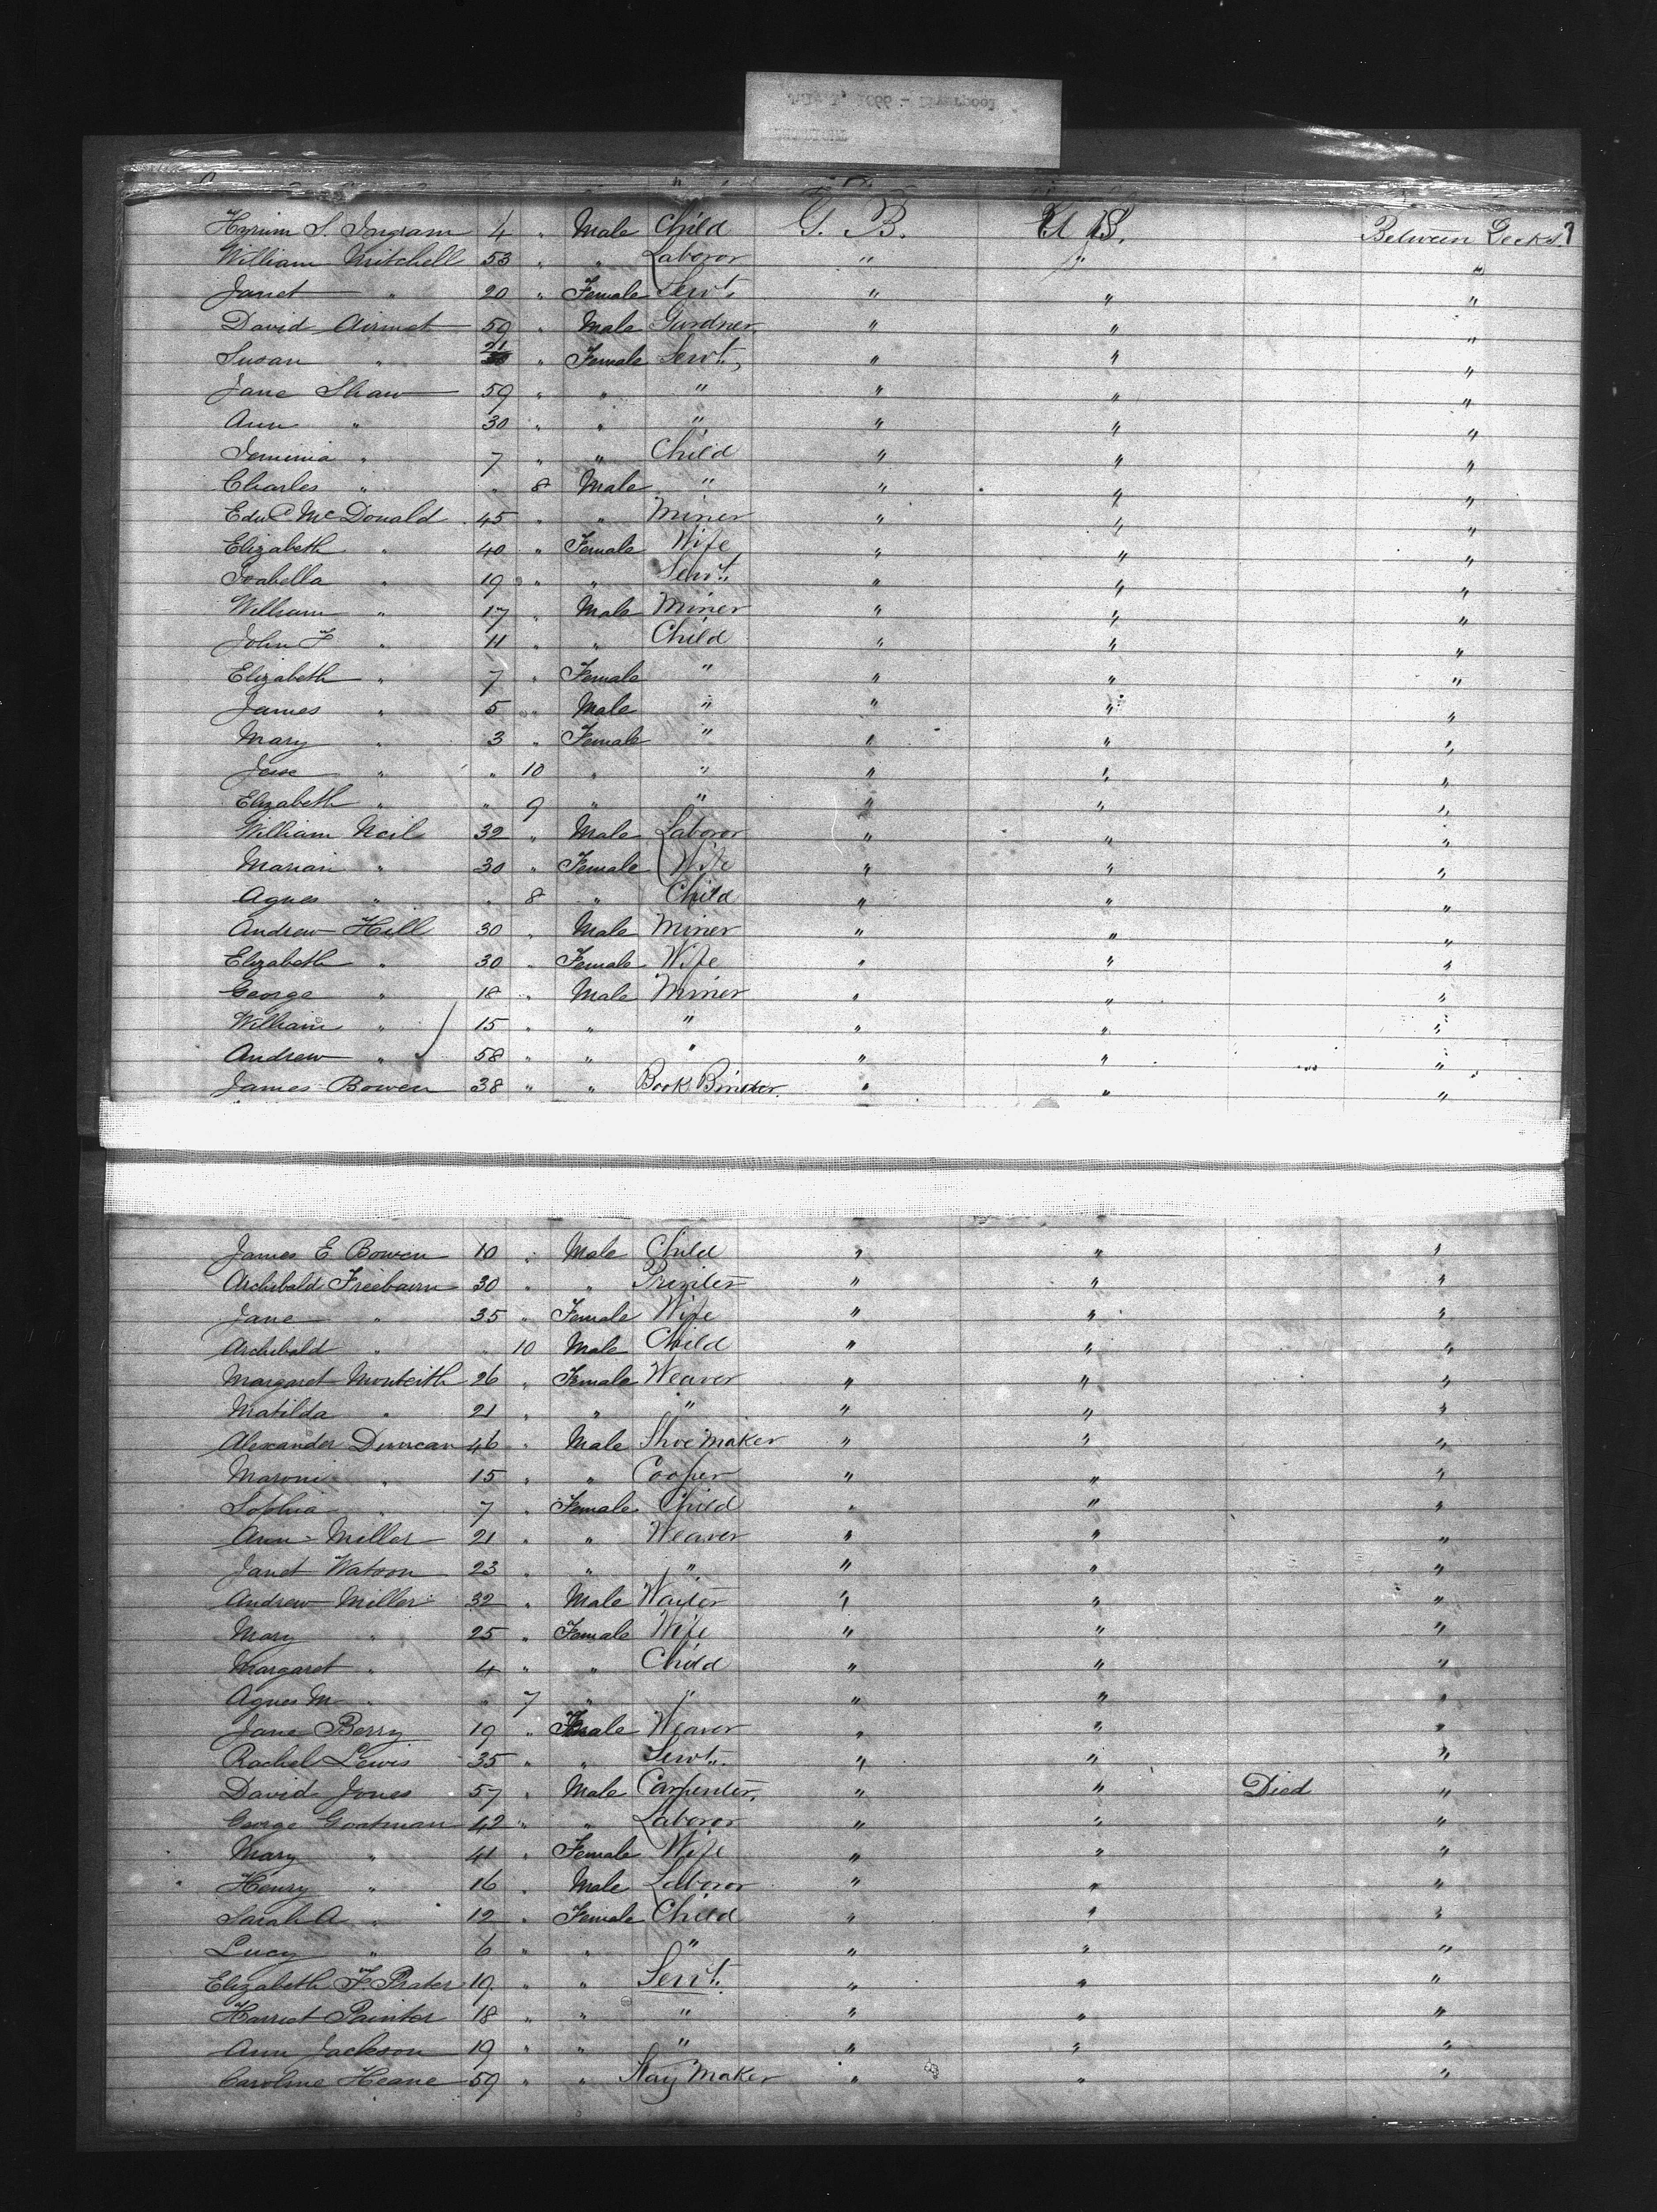 July 1, 1866 - Liverpool
Hyrum S. Ingram 4 " Male Child G. B. U S. Between Decks
William Mitchell 53 " " Laboror " " "
Janet " 20 " Female Servt. " " "
David Airmet 59 " Male Gardner " " "
Susan " 21 " Female Servt, " " "
Jane Shaw 59 " " " " " "
Ann " 30 " " " " " "
Jemima " 7 " " Child " " "
Charles " " 8 Male " " " "
Edw McDonald 45 " " Miner " " "
Elizabeth " 40 " Female Wife " " "
Isabella " 19 " " Servt. " " "
William " 17 " Male Miner " " "
John F " 11 " " Child " " "
Elizabeth " 7 " Female " " " "
James " 5 " Male " " " "
Mary " 3 " Female " " " "
" " 10 " " " " "
Elizabeth " " 9 " " " " "
William Neil 32 " Male Laboror " " "
Marian " 30 " Female Wife " " "
Agnes " " 8 " Child " " "
Andrew Hill 30 " Male Miner " " "
Elizabeth " 30 " Female Wife " " "
George " 18 " Male Miner " " "
William " 15 " " " " " "
Andrew " 58 " " " " " "
James Bowen 38 " " Book Binder. " " "
James E. Bowen 10 " Male Child " " "
Archibald Freebairn 30 " " Printer " " "
Jane " 35 " Female Wife " " "
Archibald " " 10 Male Child " " "
Margaret Monteith 26 " Female Weaver " " "
Matilda " 21 " " " " " "
Alexander Duncan 46 " Male Shoe maker " " "
Maroni " 15 " " Cooper " " "
Sophia " 7 " Female Child " " "
Ann Miller 21 " " Weaver " " "
Janet Watson 23 " " " " " "
Andrew Miller 32 " Male Waiter " " "
Mary " 25 " Female Wife " " "
Margaret " 4 " " Child " " "
Agnes M " " 7 " " " " "
Jane Berry 19 " Female Weaver " " "
Rachel Lewis 35 " " Servt. " " "
David Jones 57 " Male Carpenter, " " Died "
George Goatman 42 " " Laboror " " "
Mary " 41 " Female Wife " " "
Henry " 16 " Male Laboror " " "
Sarah A " 12 " Female Child " " "
Lucy " 6 " " " " " "
Elizabeth F. Prater 19 " " Servt. " " "
Harriet Painter 18 " " " " " "
Ann Jackson 19 " " " " " "
Caroline Heane 59 " " Stay Maker " " "